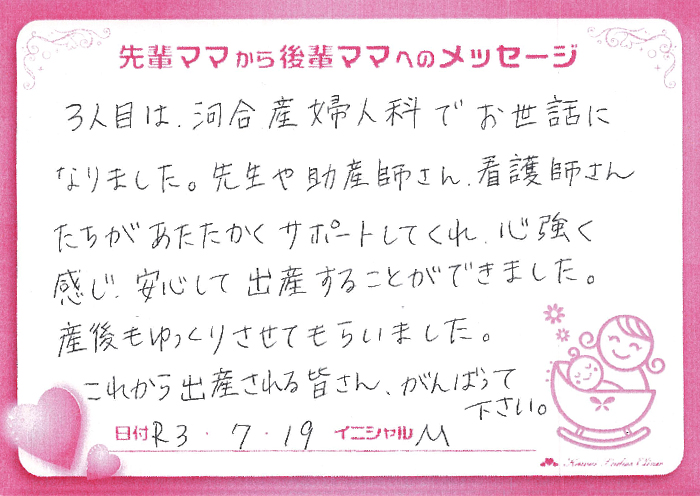 先輩ママから後輩ママへのメッセージ
3人目は、河合産婦人科でお世話に
なりました。先生や助産師さん、看護師さん
たちがあたたかくサポートしてくれ、心強く
感じ、安心して出産することができました。
産後もゆっくりさせてもらいました。
これから出産される皆さん、がんばって
下さい。
日付 R3・7・19 イニシャル M